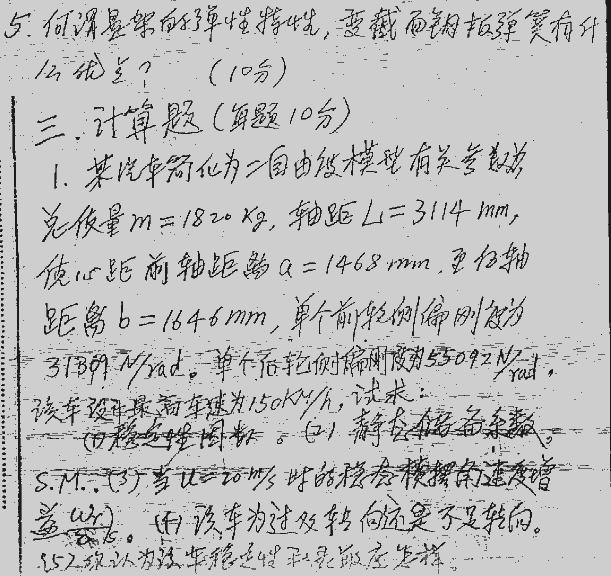 5. 何谓悬架的弹性特性, 变截面钢板弹簧有什
么优点? (10分)
三. 计算题 (每题10分)
1. 某汽车简化为二自由度模型 有关参数为
总质量 m = 1820 kg, 轴距 L = 3114 mm,
质心距前轴距离 a = 1468 mm, 至后轴
距离 b = 1646 mm, 单个前轮侧偏刚度为
N/rad。单个后轮侧偏刚度为55092 N/rad,
该车设计最高车速为150KM/h, 试求:
(1) 稳定性因数。(2) 静态储备系数
S.M. (3) 当 u = 20 m/s 时的稳态横摆角速度增
益 。(4) 该车为过多转向还是不足转向。
(5) 你认为该车稳定性 怎样。